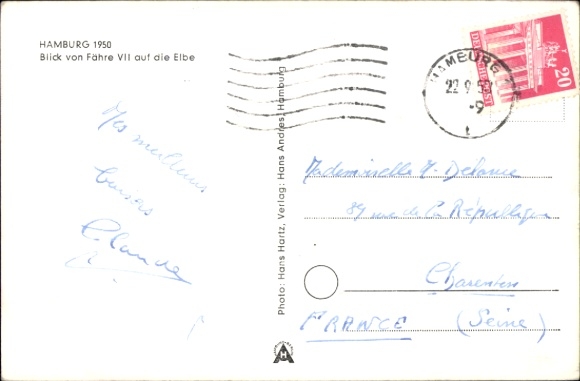 HAMBURG 1950
Blick von Fähre VII auf die Elbe
Mes meilleurs
baisers
Claude
Photo: Hans Hartz, Verlag: Hans Andres, Hamburg
HAMBURG
22.9.50
-9
DEUTSCHE POST
20
Mademoiselle M.
89 rue de la République
Charenton
FRANCE (Seine)